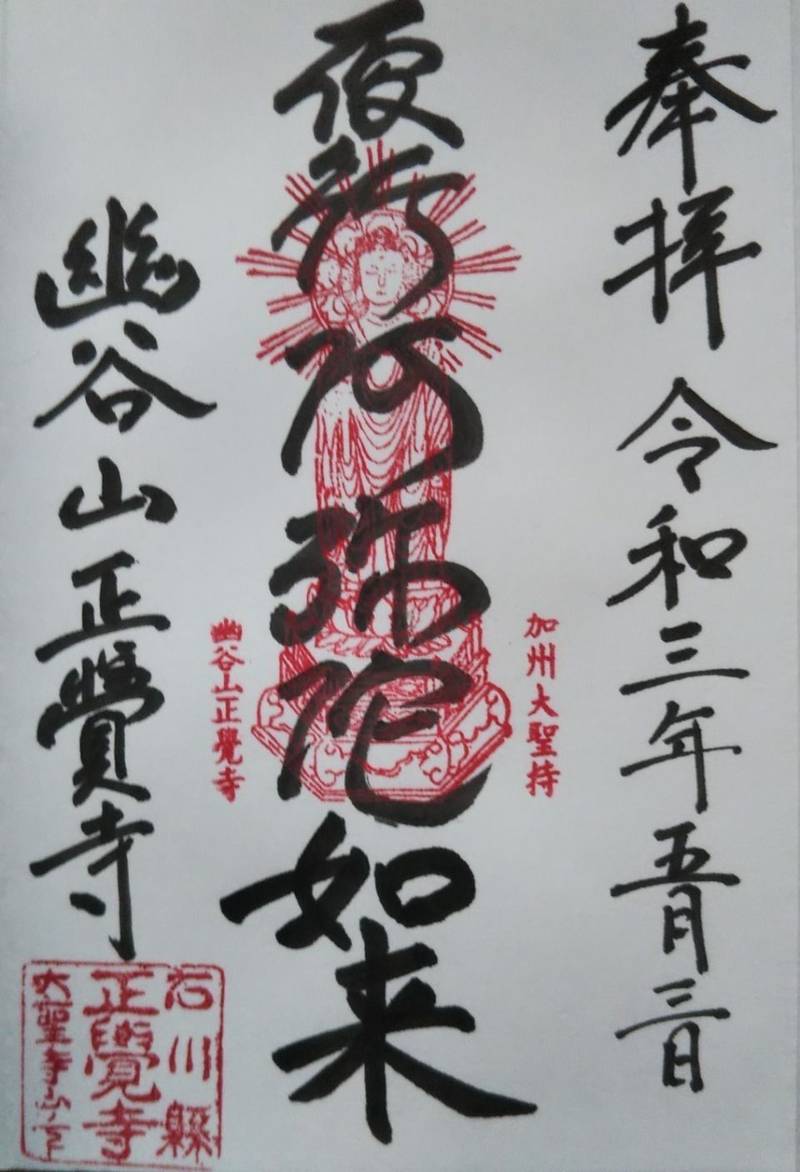 奉拝 令和三年五月三日
便行阿弥陀如来
加州大聖持
幽谷山正覺寺
幽谷山正覺寺
石川縣
正覺寺
大聖寺山ノ下